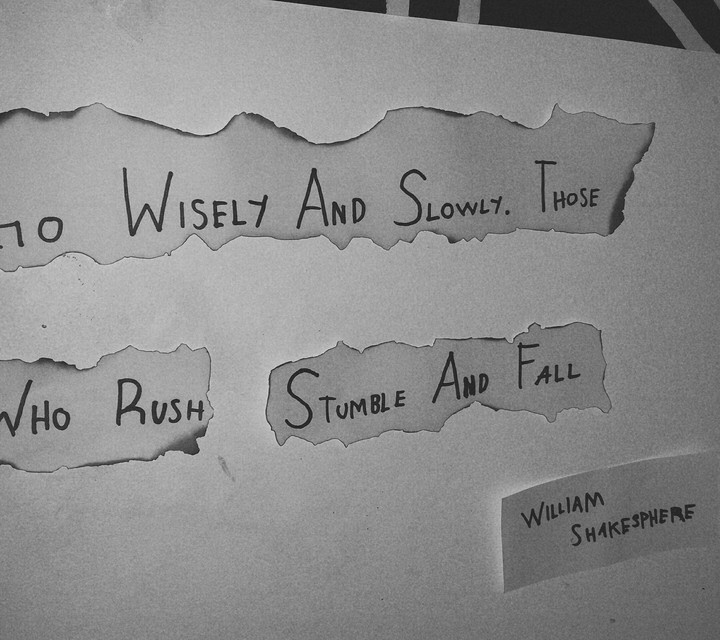 Wisely And Slowly. Those
Who Rush Stumble And Fall
William
Shakesphere